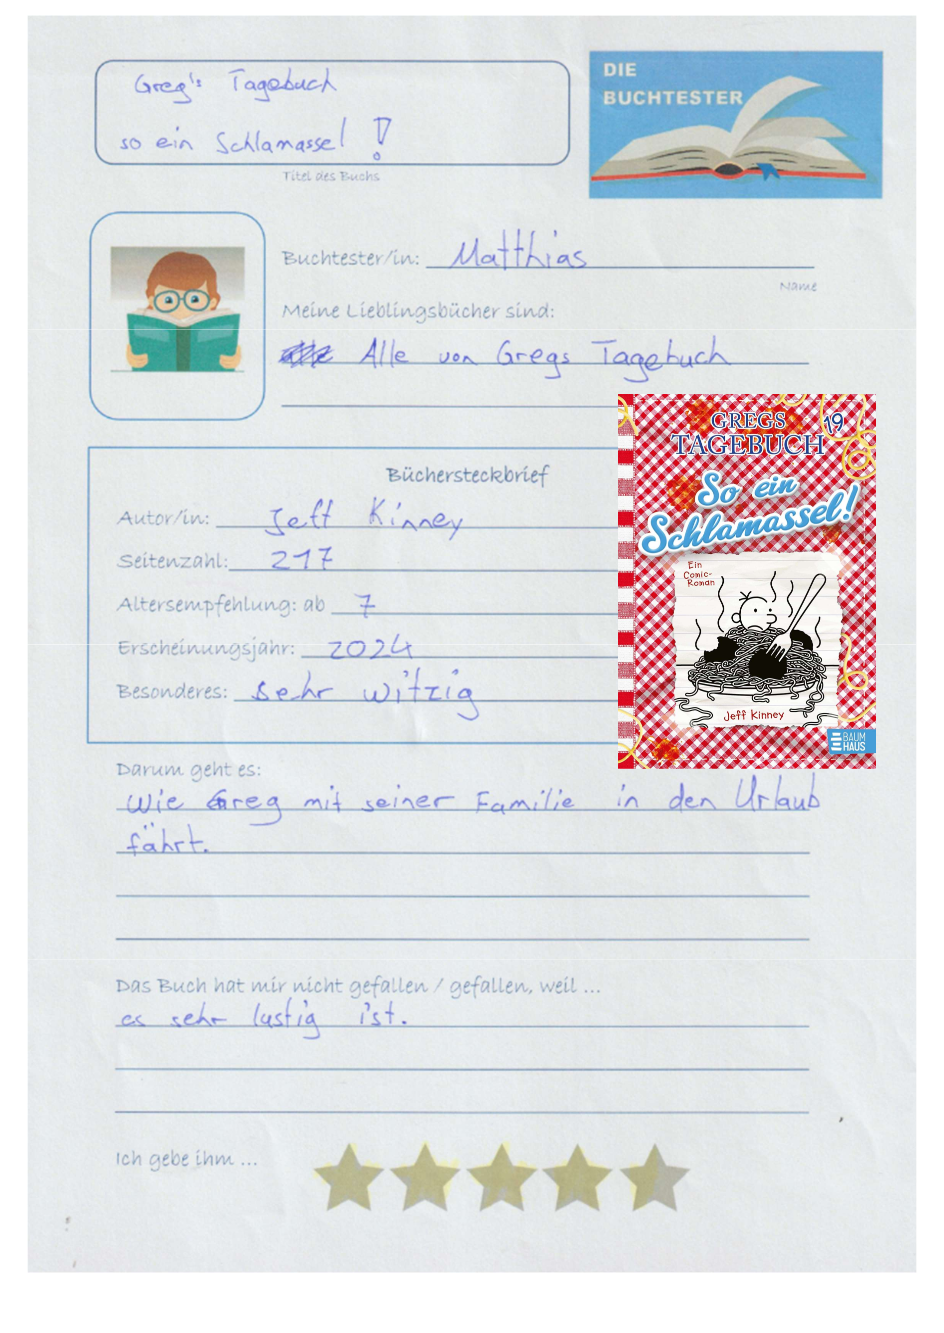 Greg's Tagebuch
so ein Schlamassel !
Titel des Buchs
DIE
BUCHTESTER
Buchtester/in: Matthias
Name
Meine Lieblingsbücher sind:
Alle von Gregs Tagebuch
GREGS 19
TAGEBUCH
So ein
Schlamassel!
Ein
Comic-
Roman
Jeff Kinney
BAUM
HAUS
Büchersteckbrief
Autor/in: Jeff Kinney
Seitenzahl: 217
Altersempfehlung: ab 7
Erscheinungsjahr: 2024
Besonderes: sehr witzig
Darum geht es:
Wie Greg mit seiner Familie in den Urlaub
fährt.
Das Buch hat mir nicht gefallen / gefallen, weil ...
es sehr lustig ist.
Ich gebe ihm ...